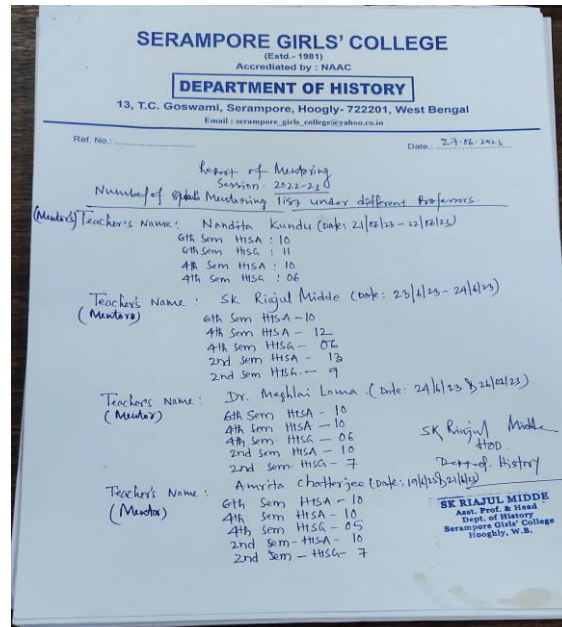 SERAMPORE GIRLS' COLLEGE
(Estd.- 1981)
Accrediated by : NAAC
DEPARTMENT OF HISTORY
13, T.C. Goswami, Serampore, Hoogly- 722201, West Bengal
Email : serampore_girls_college@yahoo.co.in
Ref. No.:
Date.: 27-06-2023
Report of Mentoring
Session - 2022-23
Number of Mentoring list under different Professors.
(Mentors) Teacher's Name : Nandita Kundu (Date: 21/02/23 - 22/02/23)
6th Sem HISA : 10
6th Sem HISG : 11
4th Sem HISA : 10
4th Sem HISG : 06
Teacher's Name : SK Riajul Midde (Date: 23/6/23 - 24/6/23)
(Mentors)
6th Sem HISA - 10
4th Sem HISA - 12
4th Sem HISG - 06
2nd Sem HISA - 13
2nd Sem HISG - 9
Teacher's Name : Dr. Meghlai Lama. (Date: 24/6/23 & 26/02/23)
(Mentor)
6th Sem HISA - 10
4th Sem HISA - 10
4th Sem HISG - 06
2nd Sem HISA - 10
2nd Sem HISG - 7
SK Riajul Midde
HOD
Dept. of. History
Teacher's Name : Amrita Chatterjee (Date: & )
(Mentor)
6th Sem HISA - 10
4th Sem HISA - 10
4th Sem HISG - 05
2nd Sem - HISA - 10
2nd Sem - HISG - 7
SK RIAJUL MIDDE
Asst. Prof. & Head
Dept. of History
Serampore Girls' College
Hooghly, W.B.